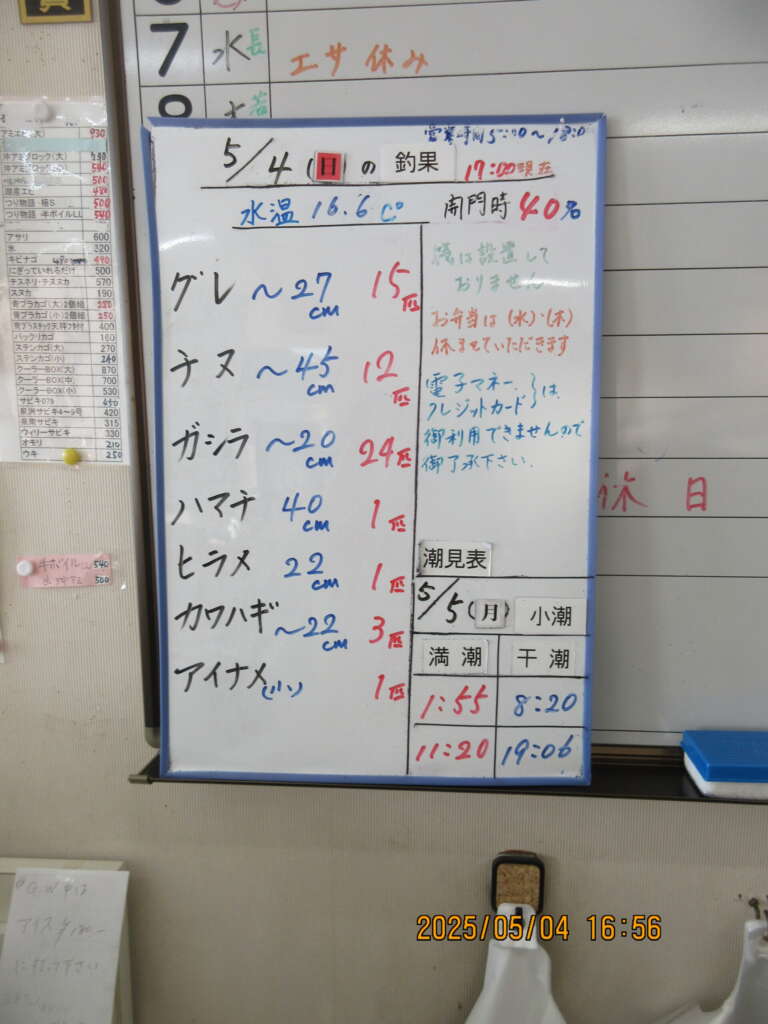 7 水 エサ休み
営業時間 5:00~18:00
5/4(日)の 釣果 17:00現在
水温 16.6 C° 開門時 40名
グレ ~27cm 15匹
チヌ ~45cm 12匹
ガシラ ~20cm 24匹
ハマチ 40cm 1匹
ヒラメ 22cm 1匹
カワハギ ~22cm 3匹
アイナメ 1匹
は設置して
おりません
お弁当は(水)・(木)
休ませていただきます
電子マネー、
クレジットカード は、
御利用できませんので
御了承下さい.
潮見表
5/5(月) 小潮
満潮 干潮
1:55 8:20
11:20 19:06
休日
アミエビ(大) 930
つり物語 極S 500
つり物語 半ボイルLL 540
アサリ 600
氷 320
キビナゴ 480 490
にぎっていれるだけ 500
チヌネリ・チヌヌカ 570
スヌカ 190
青プラカゴ(大)2個組 280
青プラカゴ(小)2個組 250
400
バックリカゴ 160
ステンカゴ(大) 270
ステンカゴ(小) 260
クーラーBOX(大) 870
クーラーBOX(中) 700
クーラーBOX(小) 530
サビキ 450
泉洲サビキ4~9号 420
泉南サビキ 315
ウィリーサビキ 330
オモリ 210
ウキ 250
半ボイルLL 540
500
G.W中は
アイス
下さい
2025/05/04 16:56